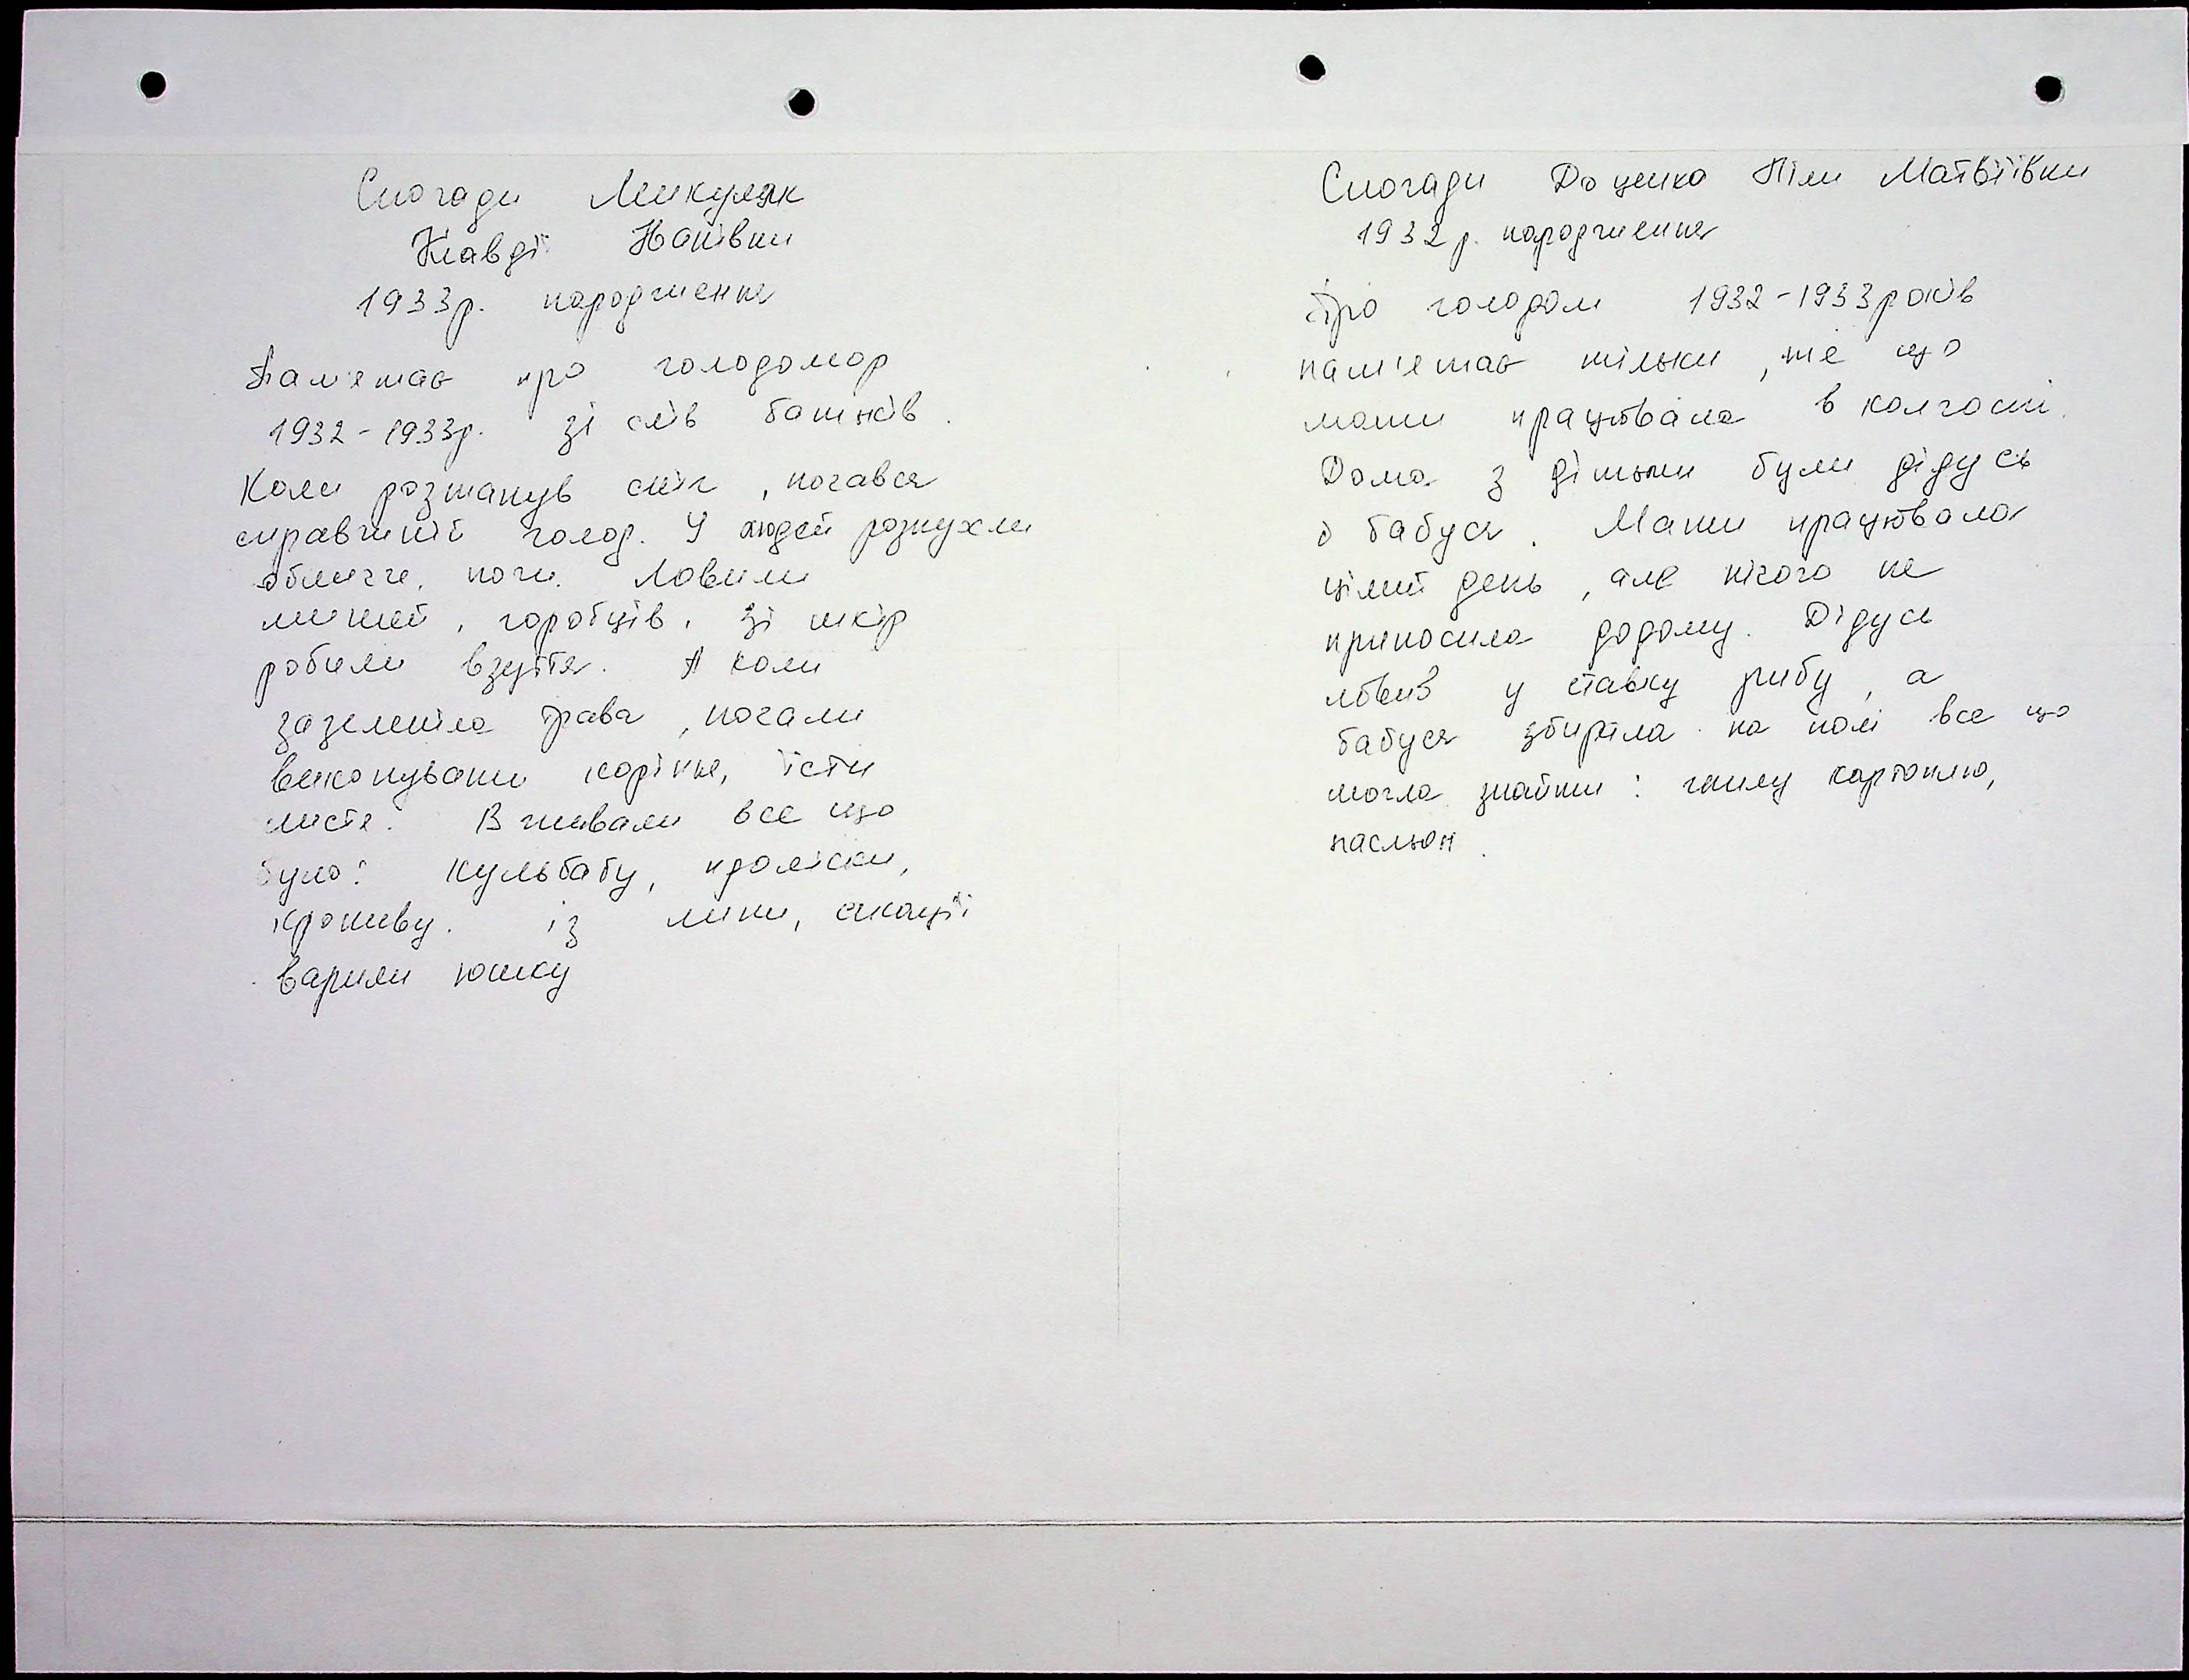 Спогади Микуляк
Клавдії
1933р. народження
Пам'ятає про голодомор
1932-1933р. зі слів батьків.
Коли розтанув сніг, почався
справжній голод. У людей розпухли
обличчя, ноги. Ловили
мишей, горобців. Зі шкір
робили взуття. А коли
зазеленіла трава, почали
викопувати коріння, їсти
листя. Вживали все що
було: кульбабу, проліски,
кропиву. із липи, акації
варили юшку
Спогади Доценко Ніли Матвіївни
1932р. народження
Про голодом 1932-1933років
пам'ятає тільки, те що
мати працювала в колгоспі.
Дома з дітьми були дідусь
і бабуся. Мати працювала
цілий день, але нічого не
приносила додому. Дідусь
ловив у ставку рибу, а
бабуся збирала на полі все що
могла знайти: гнилу картоплю,
пасльон.